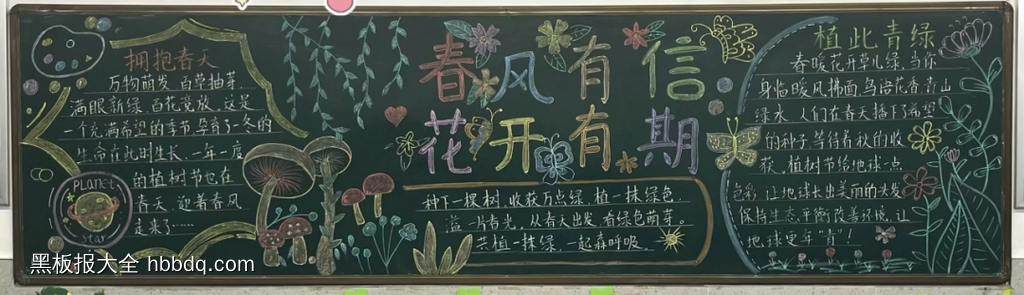 拥抱春天
万物萌发，百草抽芽，
满眼新绿，百花竞放，这是
一个充满希望的季节，孕育了一冬的
生命在此时生长，一年一度
的植树节也在
春天，迎着春风
走来了……
PLaneT
star
春风有信
花开有期
种下一棵树，收获万点绿，植一抹绿色，
溢一片春光，从春天出发，有绿色萌芽。
共植一抹绿，一起森呼吸。
植此青绿
春暖花开草儿绿，当你
身临暖风拂面，鸟语花香，青山
绿水，人们在春天播下了希望
的种子，等待着秋的收
获。植树节给地球一点
色彩，让地球长出美丽的头发
保持生态平衡，改善环境，让
地球更年"青"！
黑板报大全 hbbdq.com